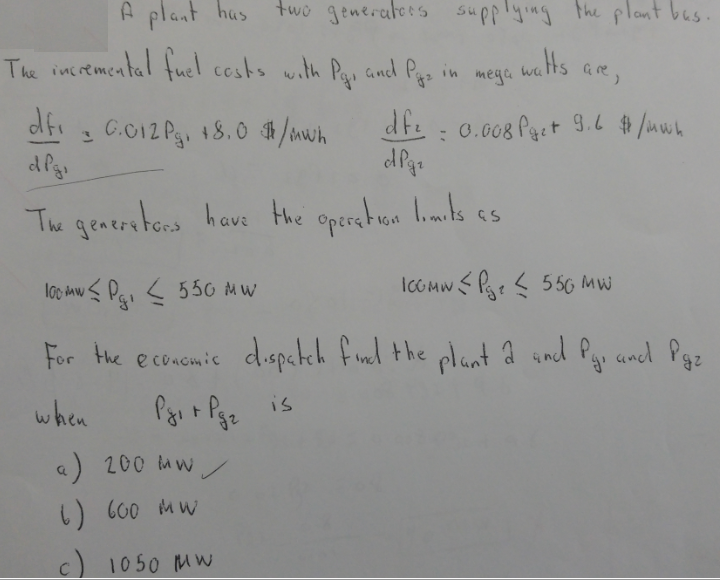 A plant has two generators supplying the plant bus.
The incremental fuel costs with Pg1 and Pg2 in mega watts are,
df1/dPg1 = 0.012Pg1 + 8.0 $/mwh df2/dPg2 = 0.008Pg2 + 9.6 $/mwh
The generators have the operation limits as
100MW ≤ Pg1 ≤ 550 MW 100MW ≤ Pg2 ≤ 550 MW
For the economic dispatch find the plant λ and Pg1 and Pg2
when Pg1 + Pg2 is
a) 200 MW ✓
b) 600 MW
c) 1050 MW